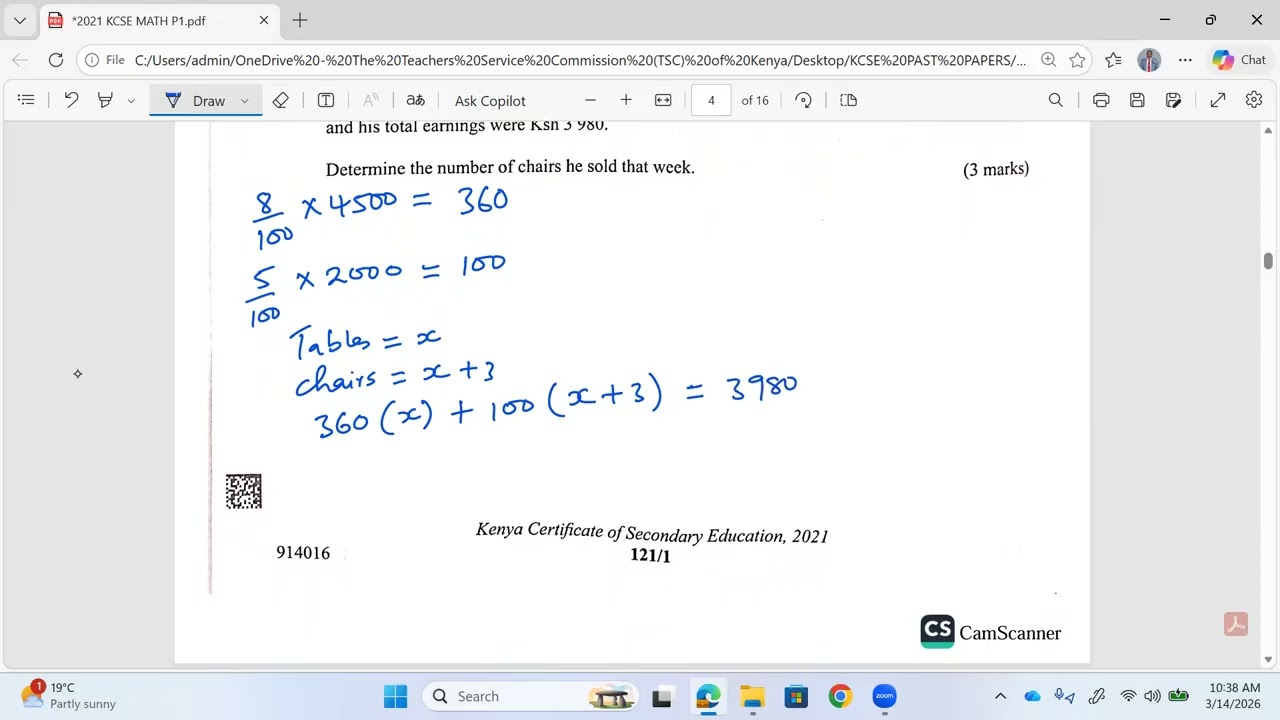 *2021 KCSE MATH P1.pdf
File C:/Users/admin/OneDrive%20-%20The%20Teachers%20Service%20Commission%20(TSC)%20of%20Kenya/Desktop/KCSE%20PAST%20PAPERS/... Chat
Draw aあ Ask Copilot 4 of 16
and his total earnings were Ksh 3 980.
Determine the number of chairs he sold that week. (3 marks)
8/100 × 4500 = 360
5/100 × 2000 = 100
Tables = x
chairs = x + 3
360 (x) + 100 (x + 3) = 3980
Kenya Certificate of Secondary Education, 2021
914016 121/1
CS CamScanner
1 19°C
Partly sunny
Search
zoom
10:38 AM
3/14/2026